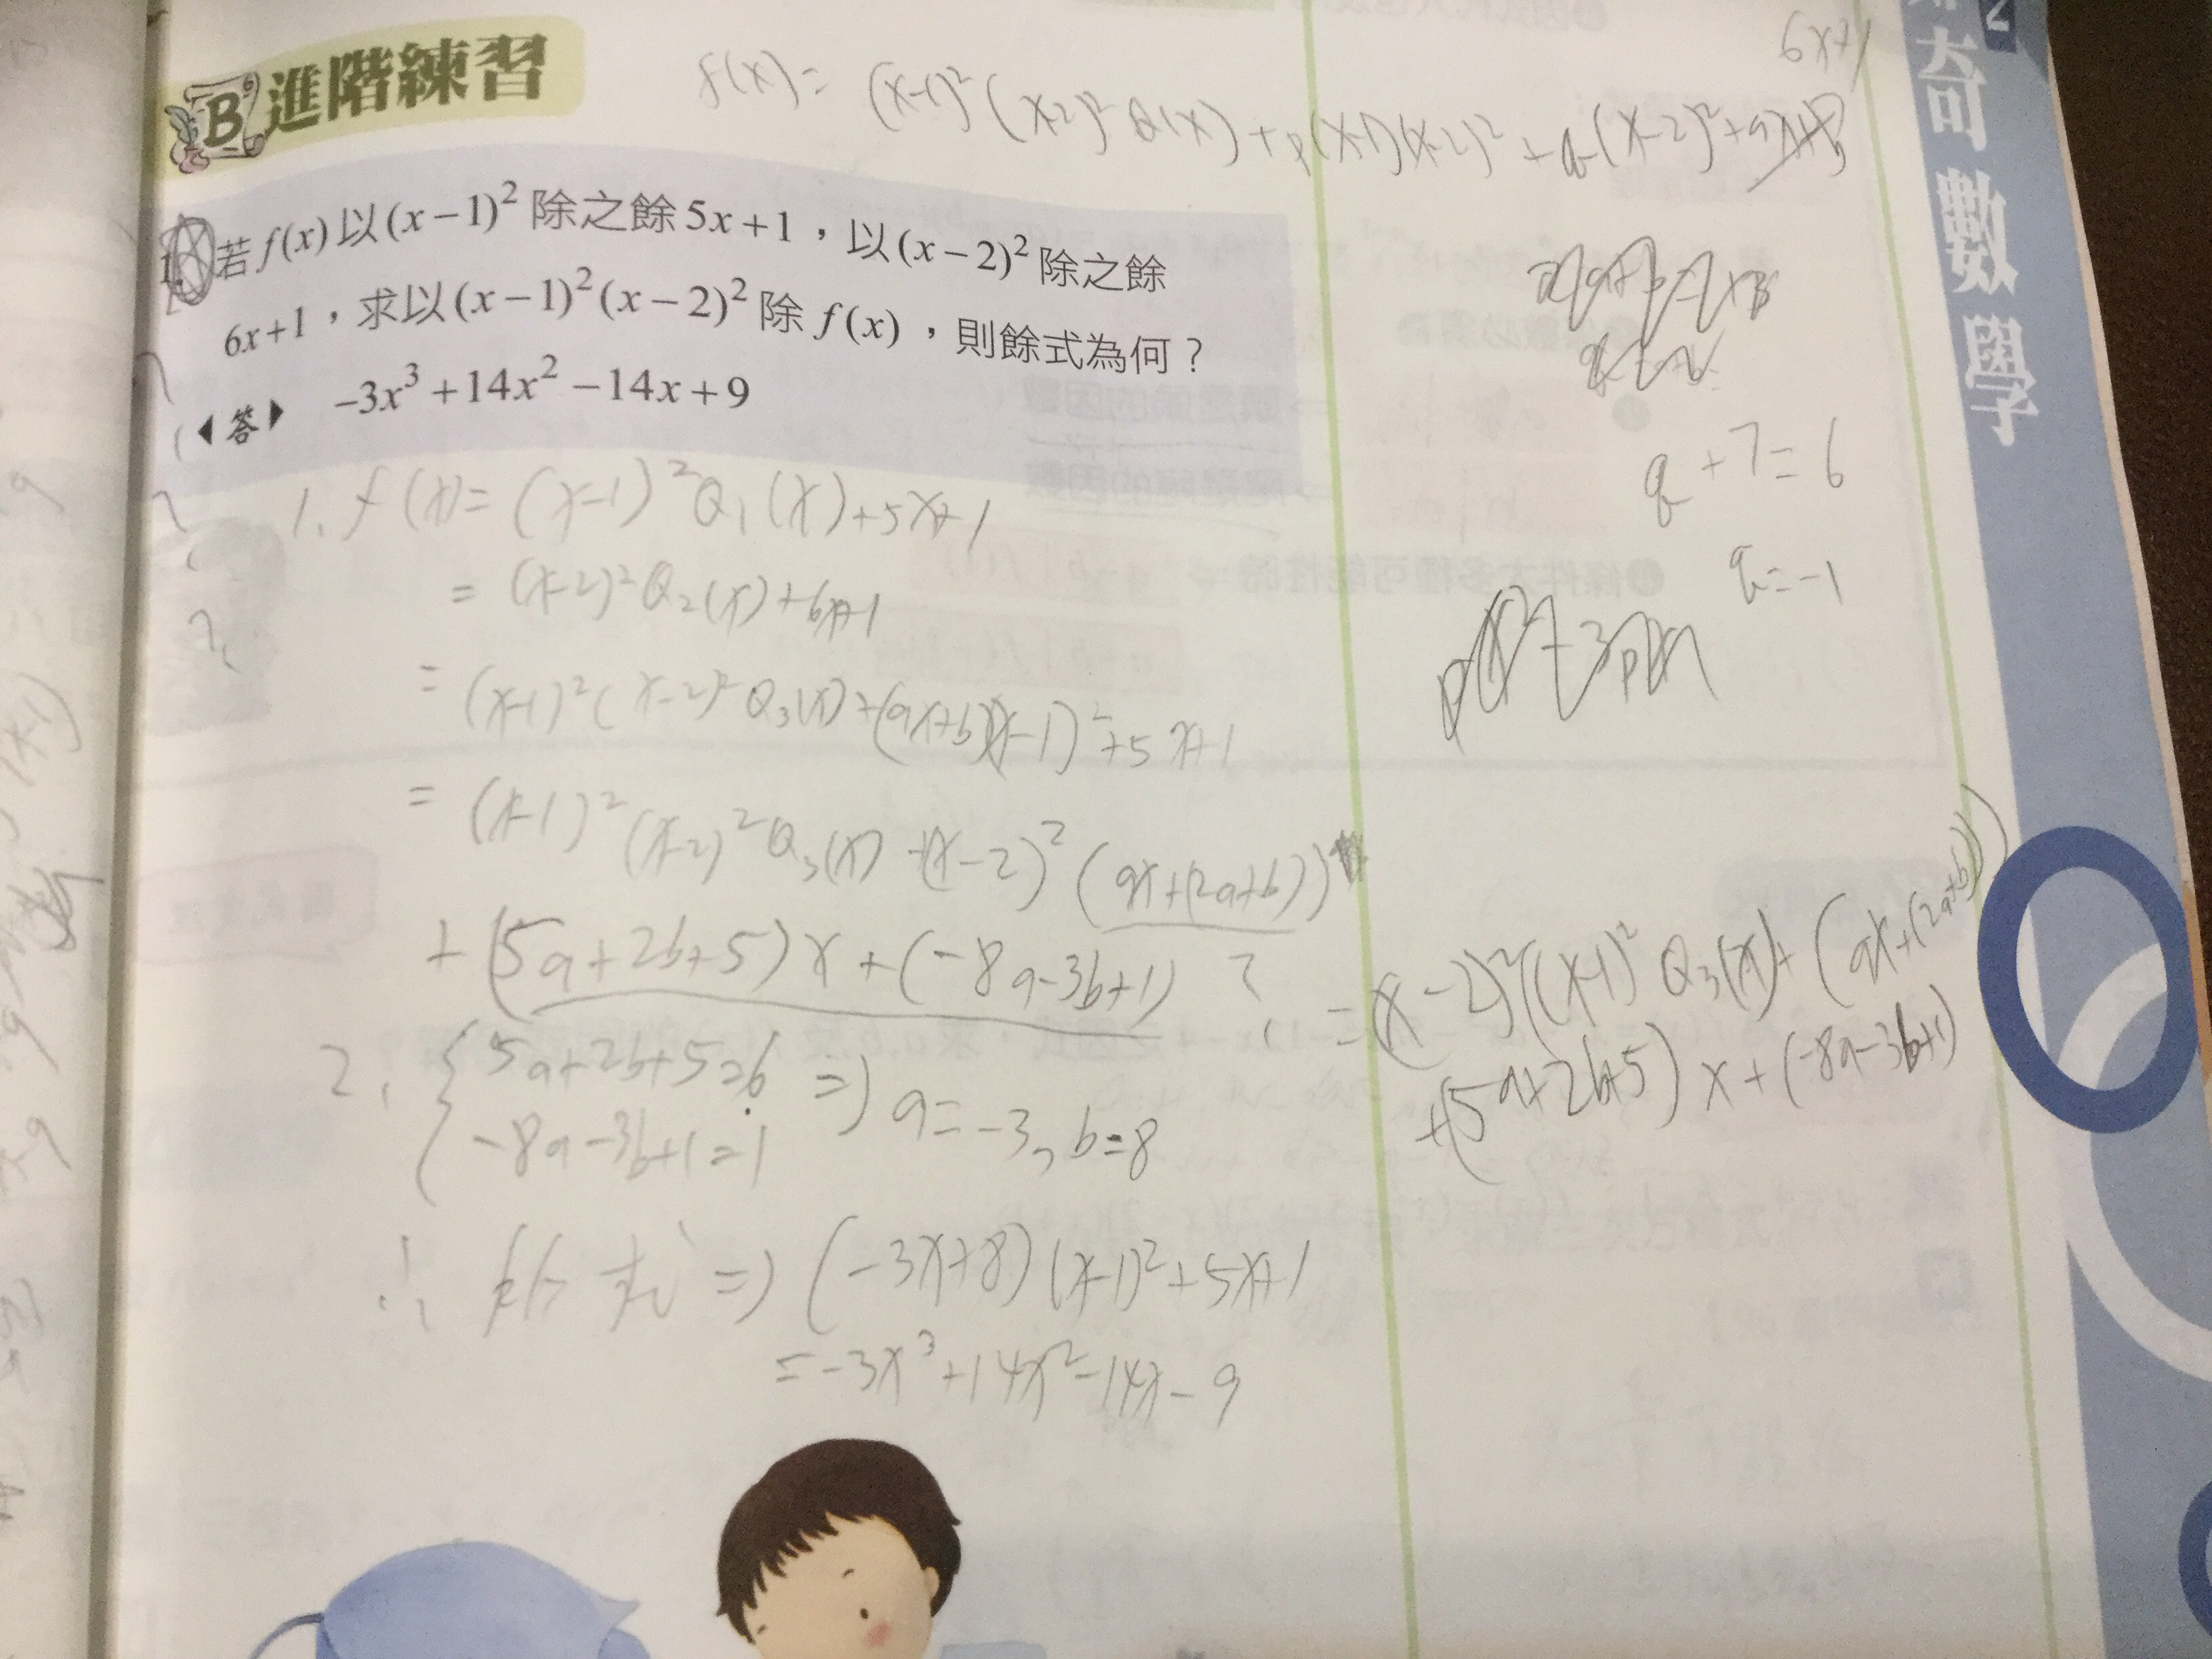 B 進階練習
f(x)= (x-1)²(x-2)²Q(x)+p(x-1)(x-2)²+q(x-2)²+
6x+1
1. 若 f(x) 以 (x-1)² 除之餘 5x+1，以 (x-2)² 除之餘
6x+1，求以 (x-1)²(x-2)² 除 f(x)，則餘式為何？
◀答▶ -3x³+14x²-14x+9
q+7=6
q=-1
1. f(x)=(x-1)²Q₁(x)+5x+1
=(x-2)²Q₂(x)+6x+1
=(x-1)²(x-2)²Q₃(x)+(ax+b)(x-1)²+5x+1
=(x-1)²(x-2)²Q₃(x)+(x-2)²(ax+(2a+b))
+(5a+2b+5)x+(-8a-3b+1)
=(x-2)²((x-1)²Q₃(x)+(ax+(2a+b)))
+(5a+2b+5)x+(-8a-3b+1)
2. { 5a+2b+5=6
-8a-3b+1=1 => a=-3, b=8
∴ 餘式 => (-3x+8)(x-1)²+5x+1
=-3x³+14x²-14x-9
奇數學
2